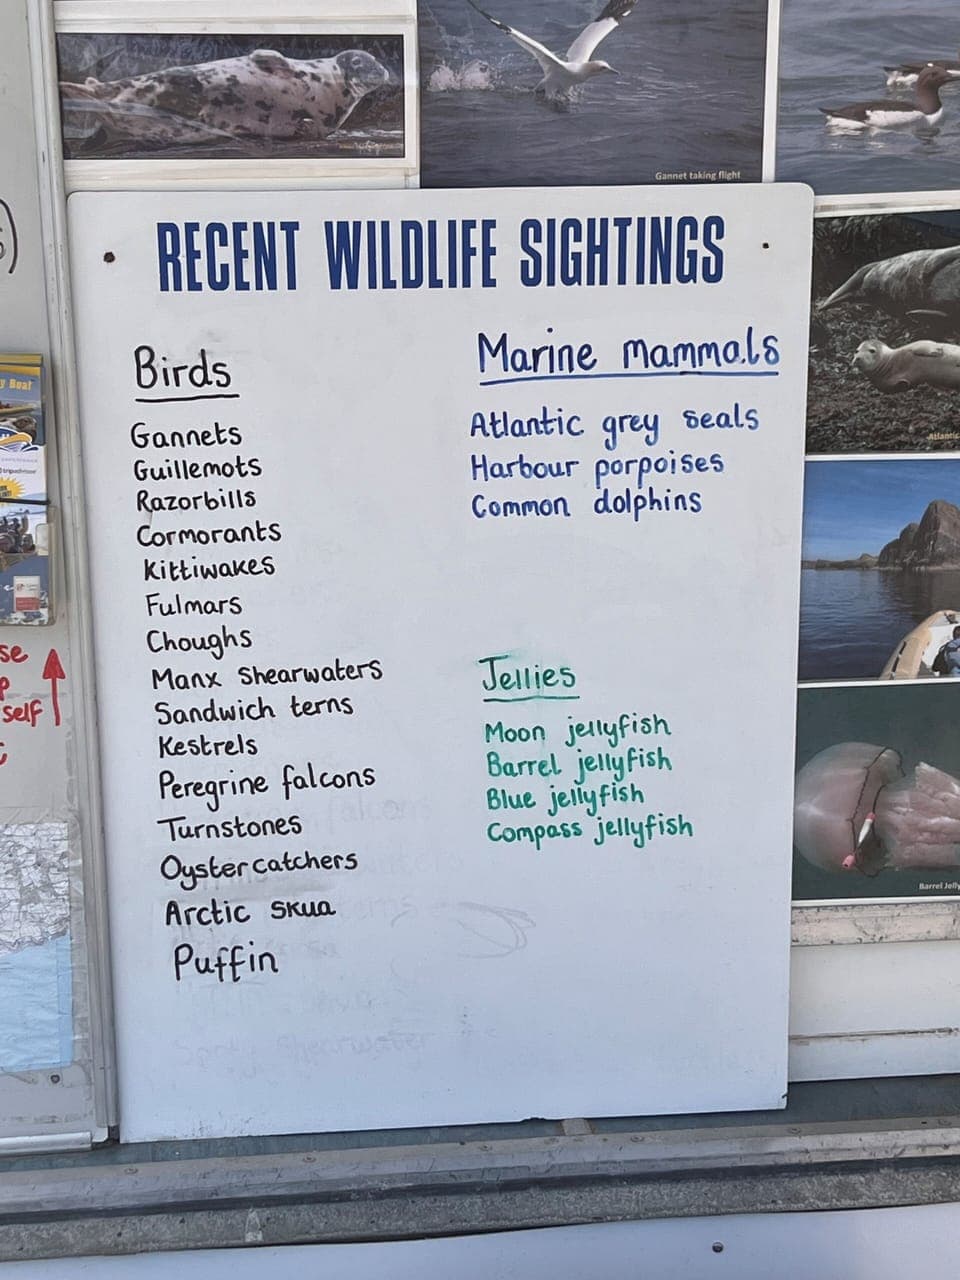 Gannet taking flight
RECENT WILDLIFE SIGHTINGS
Birds
Gannets
Guillemots
Razorbills
Cormorants
Kittiwakes
Fulmars
Choughs
Manx Shearwaters
Sandwich terns
Kestrels
Peregrine falcons
Turnstones
Oystercatchers
Arctic skua
Puffin
Marine mammals
Atlantic grey seals
Harbour porpoises
Common dolphins
Jellies
Moon jellyfish
Barrel jellyfish
Blue jellyfish
Compass jellyfish
Atlantic
Barrel Jelly
y Boat
self